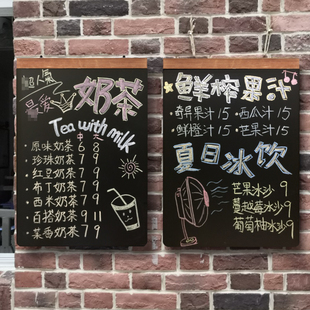 超人氣
最爱
奶茶
Tea with milk
中 大
·原味奶茶 6 8
·珍珠奶茶 7 9
·红豆奶茶 7 9
·布丁奶茶 7 9
·西米奶茶 7 9
·百搭奶茶 9 11
·茉香奶茶 7 9
鲜榨果汁
·奇异果汁 15 ·西瓜汁 15
·鲜橙汁 15 ·芒果汁 15
夏日冰饮
芒果冰沙 9
蔓越莓冰沙 9
葡萄柚冰沙 9